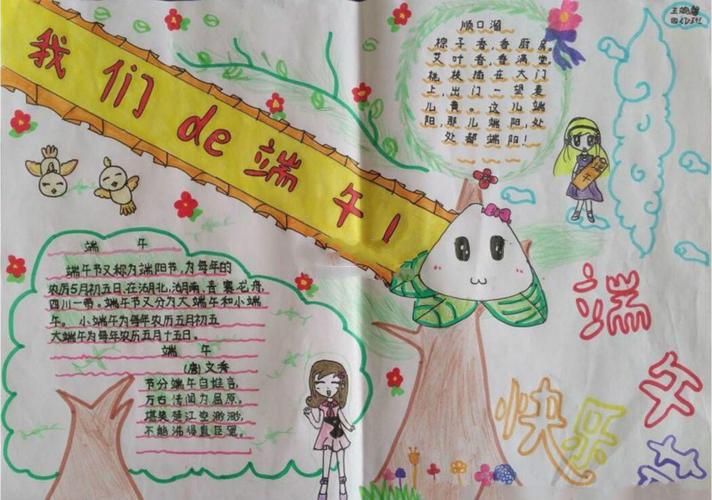 我们de端午！
顺口溜
粽子香，香厨房。
艾叶香，香满堂。
桃枝插在大门
上，出门一望麦
儿黄。这儿端
阳，那儿端阳，处
处都端阳！
端 午
端午节又称为端阳节，为每年的
农历5月初五日，在湖北，湖南，
四川一带，端午节又分为大端午和小端
午。小端午为每年农历五月初五
大端午为每年农历五月十五日。
端 午
(唐)文秀
节分端午自谁言，
万古传闻为屈原。
堪笑楚江空渺渺，
不能洗得直臣冤。
午
端午
快乐